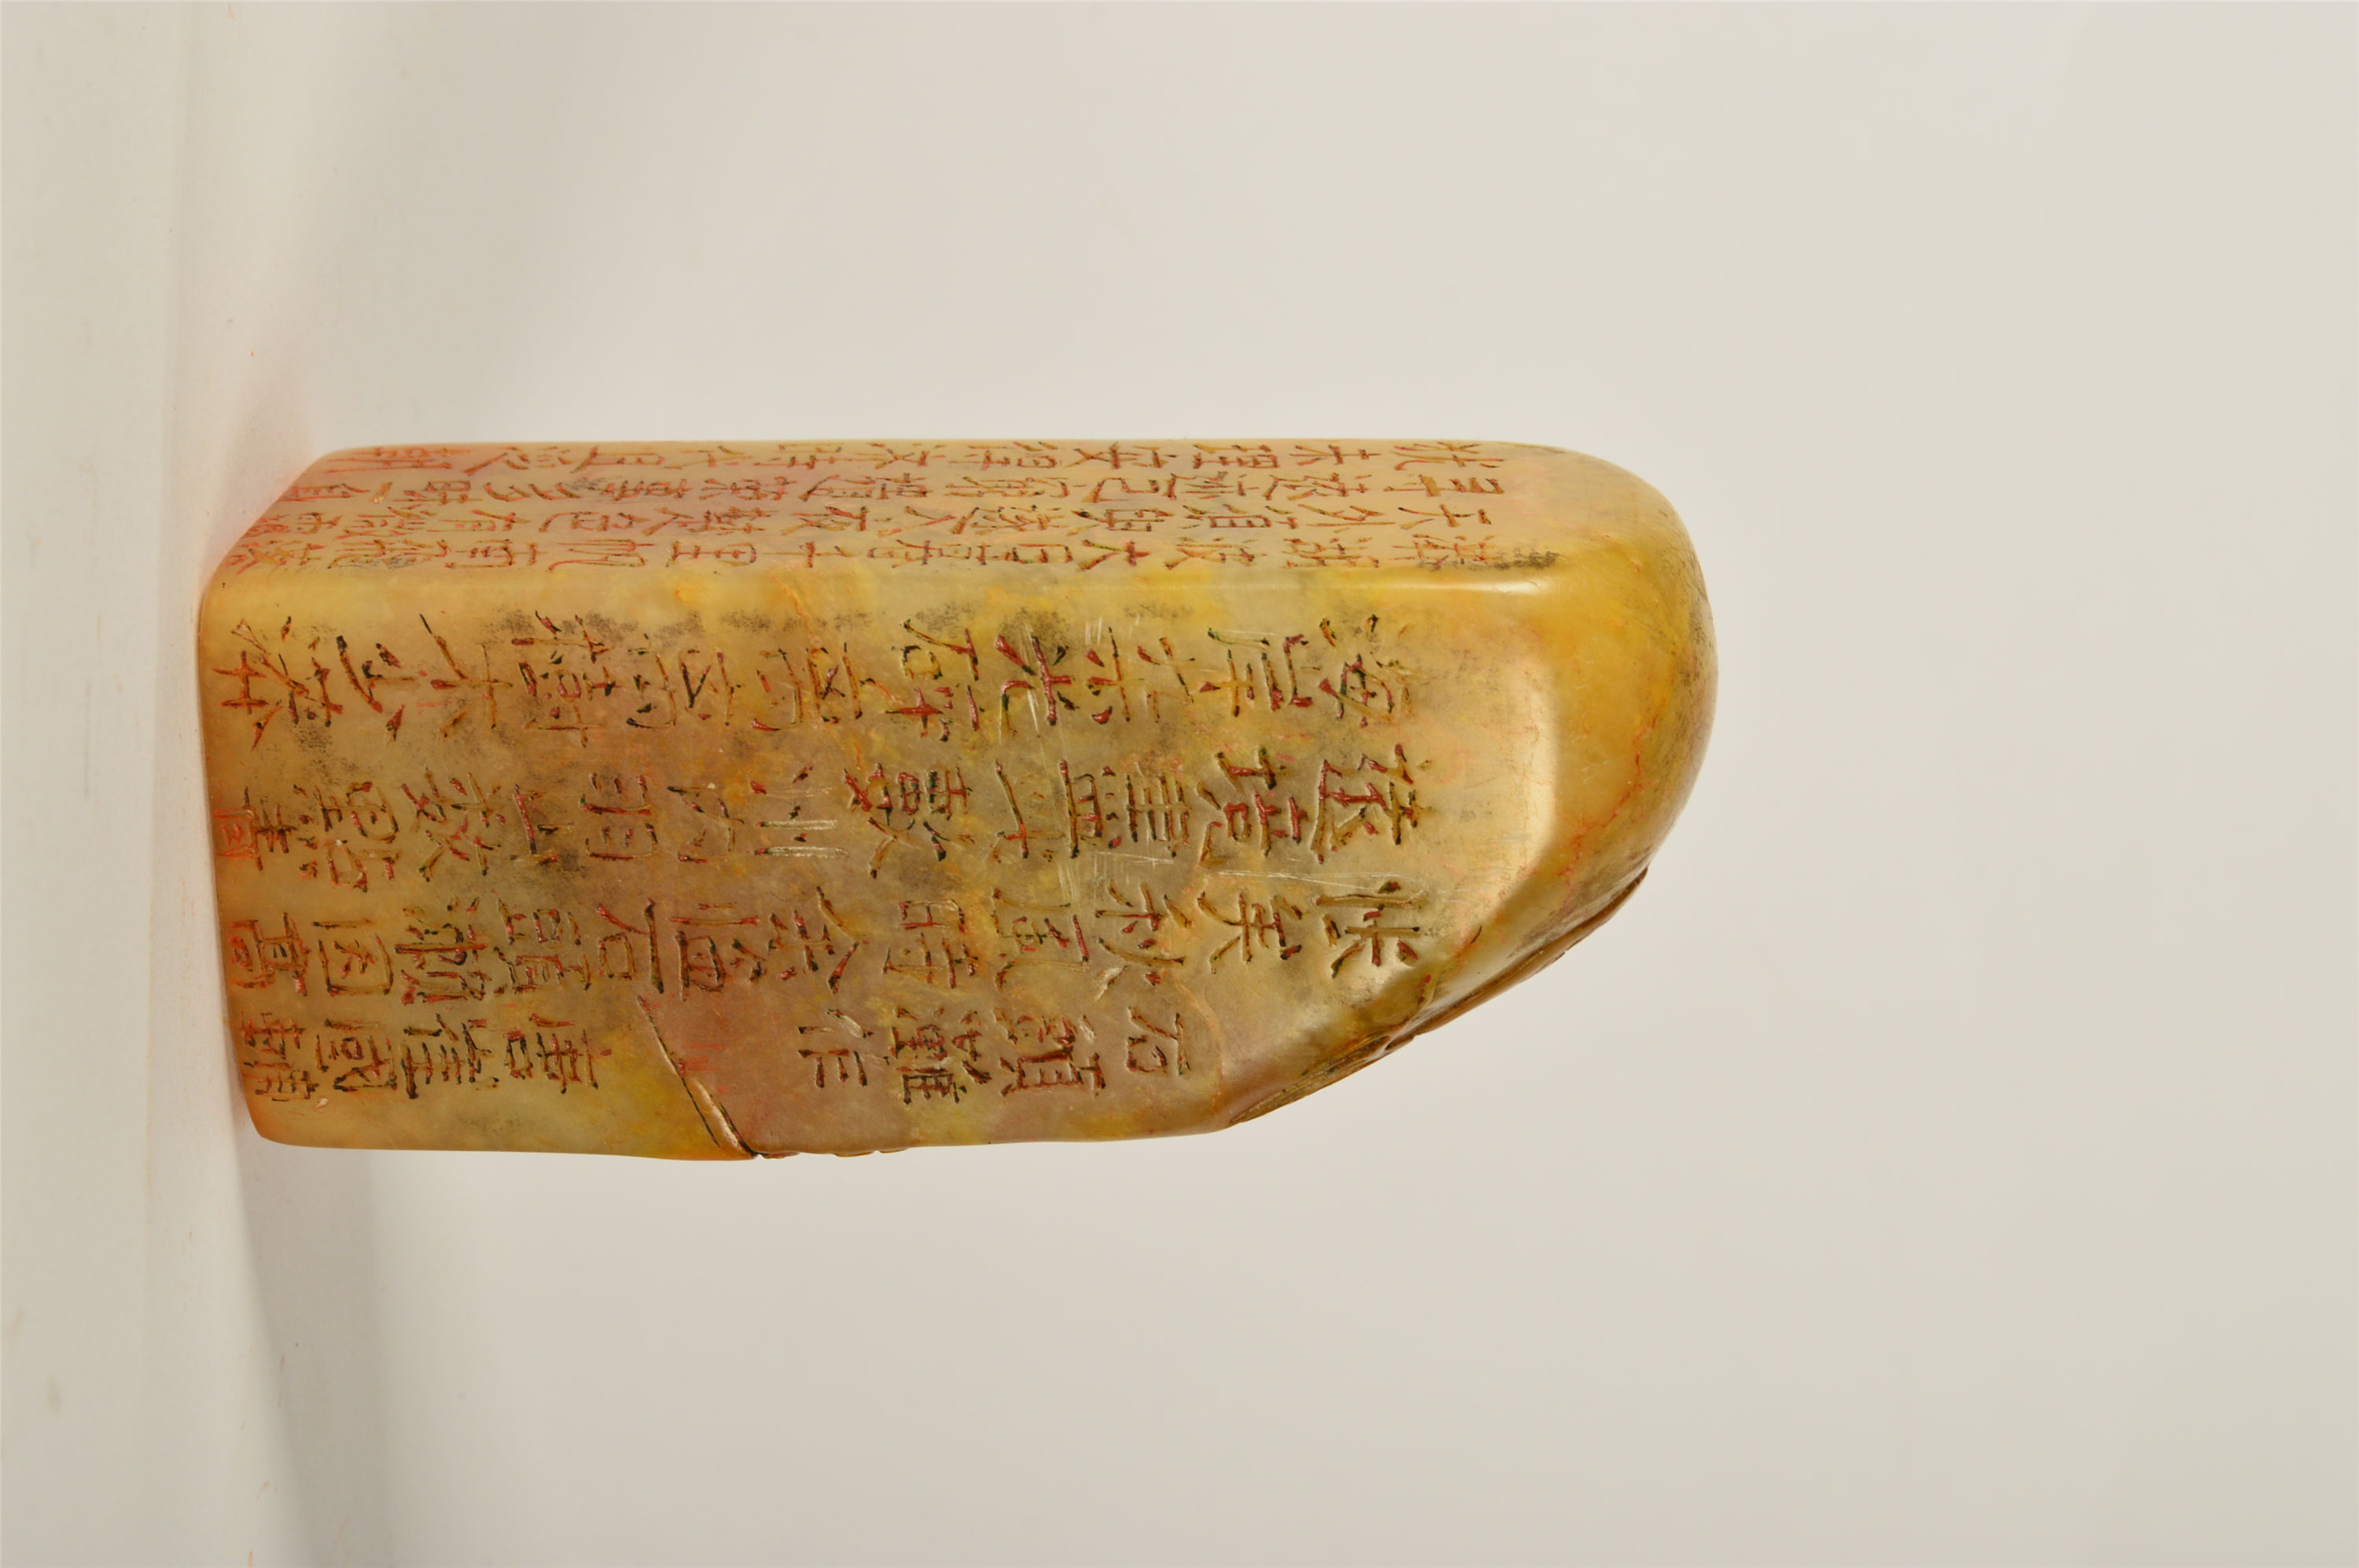 石頭灘作 唐崔國輔
悵矣秋風時余臨石頭瀨因髙
遠境盡此數州内羽山数點青
海岸杂光碎离离樹木少漭
漭湖波大日暮千里帆南飛落
天外須臾遂入夜楚色有微雨
尋遠迹已窮遺榮事多昧一身
犹未理安得济時代且泛朝